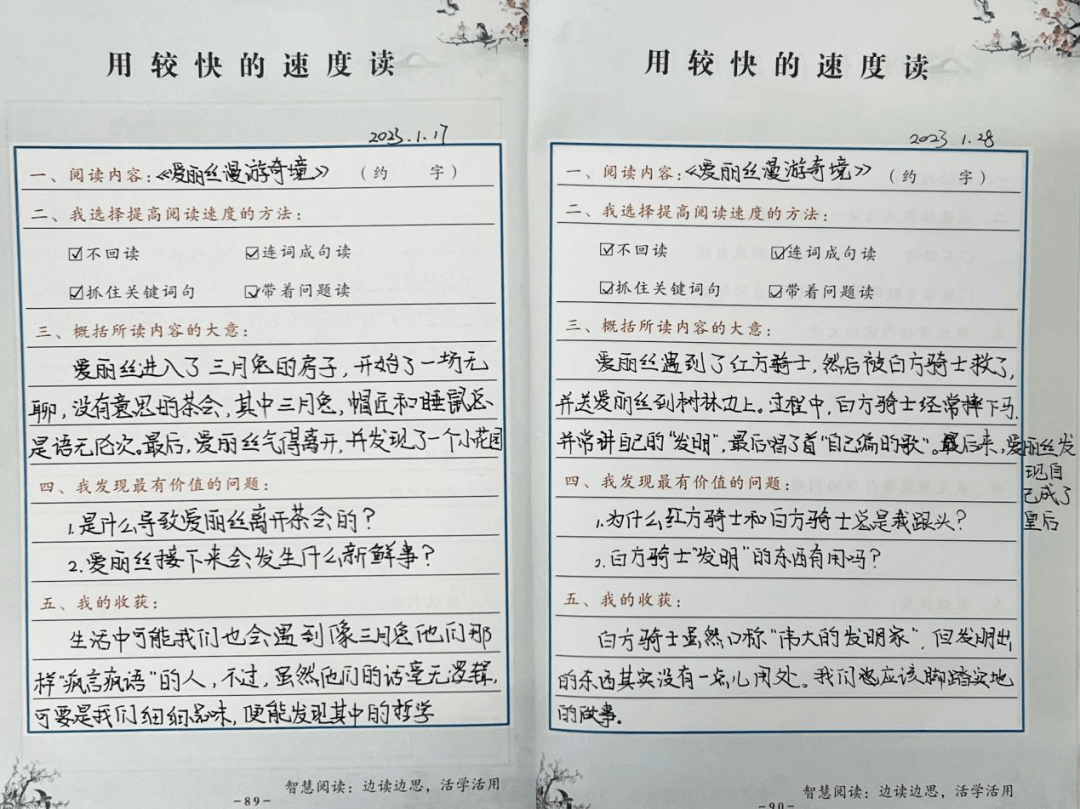 用较快的速度读
2023.1.17
一、阅读内容：《爱丽丝漫游奇境》（约 字）
二、我选择提高阅读速度的方法：
☑不回读 ☑连词成句读
☑抓住关键词句 ☑带着问题读
三、概括所读内容的大意：
爱丽丝进入了三月兔的房子，开始了一场无
聊，没有意思的茶会，其中三月兔，帽匠和睡鼠总
是语无伦次。最后，爱丽丝气得离开，并发现了一个小花园
四、我发现最有价值的问题：
1.是什么导致爱丽丝离开茶会的？
2.爱丽丝接下来会发生什么新鲜事？
五、我的收获：
生活中可能我们也会遇到像三月兔他们那
样“疯言疯语”的人，不过，虽然他们的话毫无逻辑，
可要是我们细细品味，便能发现其中的哲学
智慧阅读：边读边思，活学活用
-89-
用较快的速度读
2023.1.28
一、阅读内容：《爱丽丝漫游奇境》（约 字）
二、我选择提高阅读速度的方法：
☑不回读 ☑连词成句读
☑抓住关键词句 ☑带着问题读
三、概括所读内容的大意：
爱丽丝遇到了红方骑士，然后被白方骑士救了，
并送爱丽丝到树林边上。过程中，白方骑士经常摔下马，
并常讲自己的“发明”，最后唱了首“自己编的歌”。最后来，爱丽丝发
现自
己成了
皇后
四、我发现最有价值的问题：
1.为什么红方骑士和白方骑士总是栽跟头？
2.白方骑士“发明”的东西有用吗？
五、我的收获：
白方骑士虽然口称“伟大的发明家”，但发明出
的东西其实没有一点儿用处。我们也应该脚踏实地
的做事。
智慧阅读：边读边思，活学活用
-90-